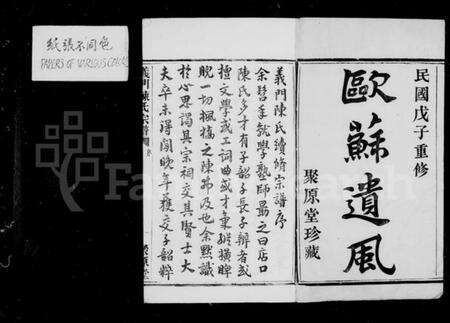 紙張不同色
PAPERS OF VARIOUS COLORS
民國戊子重修
歐蘇遺風
聚原堂珍藏
義門陳氏續修宗譜序
余髫年就學塾師勗之曰店口
陳氏多才有子韶子長子辨者或
擅文學或工詞曲或才氣縱橫睥
睨一切楓橋之陳弗及也余默識
於心思謁其宗祠交其賢士大
夫卒未得閒晚年獲交子韶粹